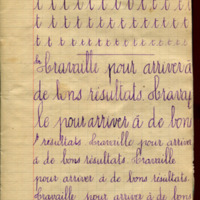 t t t t t t t t t t t t
t t t t t t t t t t t t
t t t t t t t t t t t t
Travaille pour arriver à
de bons résultats Travail
le pour arriver à de bons
résultats Travaille pour arriver
à de bons résultats. Travaille
pour arriver à de bons résultats.
Travaille pour arriver à de bons